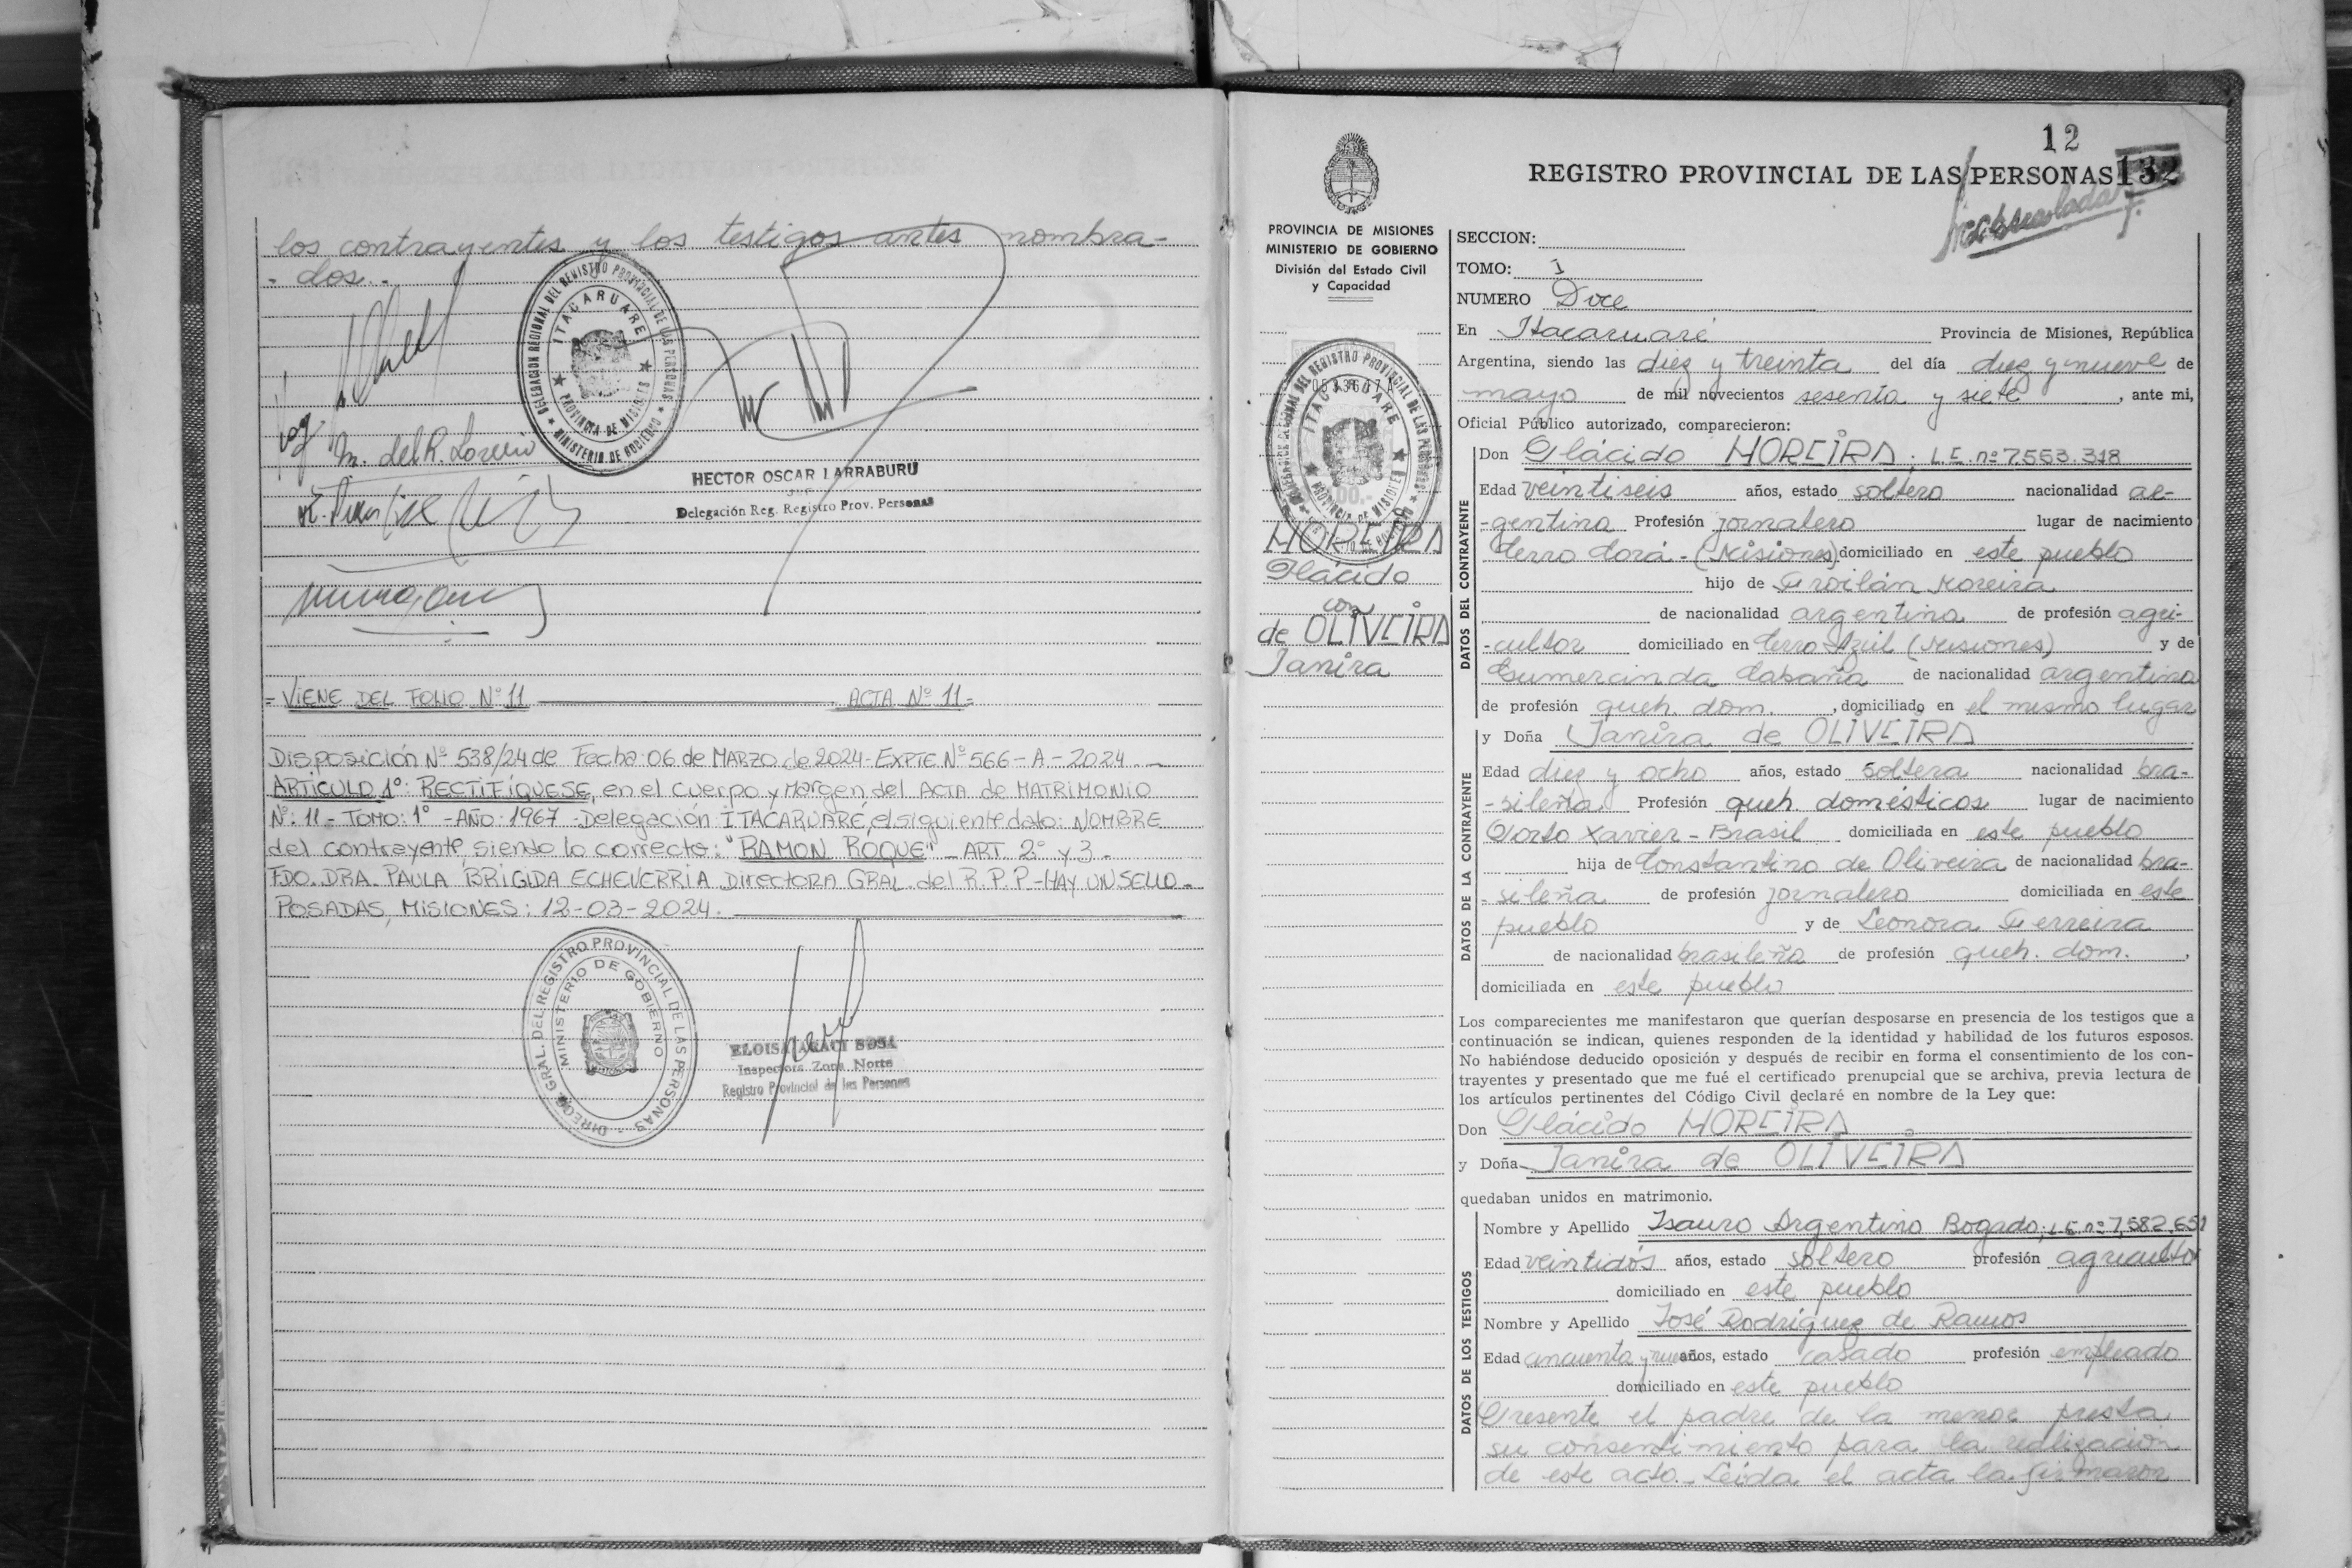 los contrayentes y los testigos antes nombra-
- dos.-
DELEGACION REGIONAL DEL REGISTRO PROVINCIAL DE LAS PERSONAS
ITACARUARE
PROVINCIA DE MISIONES
MINISTERIO DE GOBIERNO
M. del R.
HECTOR OSCAR LARRABURU
Delegación Reg. Registro Prov. Personas
= VIENE DEL FOLIO Nº 11 ACTA Nº 11=
Disposición Nº 538/24 de Fecha: 06 de MARZO de 2024 - EXPTE. Nº 566 - A - 2024.-
ARTICULO 1º: RECTIFIQUESE, en el cuerpo y Margen del ACTA de MATRIMONIO
Nº: 11 - TOMO: 1º - AÑO: 1967 - Delegación ITACARUARE, el siguiente dato: NOMBRE
del contrayente, siendo lo correcto: "RAMON ROQUE" - ART. 2º y 3 -
FDO. DRA. PAULA BRIGIDA ECHEVERRIA Directora GRAL. del R.P.P - HAY UN SELLO -
POSADAS, MISIONES: 12-03-2024.
DIREC. GRAL. DEL REGISTRO PROVINCIAL DE LAS PERSONAS
MINISTERIO DE GOBIERNO
ELOISA ARACI SOSA
Inspectora Zona Norte
Registro Provincial de las Personas
12
REGISTRO PROVINCIAL DE LAS PERSONAS 132
PROVINCIA DE MISIONES
MINISTERIO DE GOBIERNO
División del Estado Civil
y Capacidad
DELEGACION REGIONAL DEL REGISTRO PROVINCIAL DE LAS PERSONAS
ITACARUARE
PROVINCIA DE MISIONES
MOREIRA
Plácido
con
de OLIVEIRA
Janira
SECCION:
TOMO: I
NUMERO Doce
En Itacaruaré Provincia de Misiones, República
Argentina, siendo las diez y treinta del día diez y nueve de
mayo de mil novecientos sesenta y siete, ante mi,
Oficial Público autorizado, comparecieron:
DATOS DEL CONTRAYENTE
Don Plácido MOREIRA; L.E. nº 7.553.318
Edad veintiseis años, estado soltero nacionalidad ar-
-gentina Profesión jornalero lugar de nacimiento
Cerro Corá - (Misiones) domiciliado en este pueblo
hijo de Froilán Moreira
de nacionalidad argentina de profesión agri-
-cultor domiciliado en Cerro Azul (Misiones) y de
Gumercinda Cabaña de nacionalidad argentina
de profesión queh. dom., domiciliado en el mismo lugar
DATOS DE LA CONTRAYENTE
y Doña Janira de OLIVEIRA
Edad diez y ocho años, estado soltera nacionalidad bra-
-sileña Profesión queh. domésticos lugar de nacimiento
Porto Xavier - Brasil domiciliada en este pueblo
hija de Constantino de Oliveira de nacionalidad bra-
-sileña de profesión jornalero domiciliada en este
pueblo y de Leonora Ferreira
de nacionalidad brasileña de profesión queh. dom.,
domiciliada en este pueblo
Los comparecientes me manifestaron que querían desposarse en presencia de los testigos que a
continuación se indican, quienes responden de la identidad y habilidad de los futuros esposos.
No habiéndose deducido oposición y después de recibir en forma el consentimiento de los con-
trayentes y presentado que me fué el certificado prenupcial que se archiva, previa lectura de
los artículos pertinentes del Código Civil declaré en nombre de la Ley que:
Don Plácido MOREIRA
y Doña Janira de OLIVEIRA
quedaban unidos en matrimonio.
DATOS DE LOS TESTIGOS
Nombre y Apellido Isauro Argentino Bogado; L.E. nº 7.582.651
Edad veintidós años, estado soltero profesión agricultor
domiciliado en este pueblo
Nombre y Apellido José Rodriguez de Ramos
Edad cincuenta y nueve años, estado casado profesión empleado
domiciliado en este pueblo
Presente el padre de la menor presta
su consentimiento para la realizacion
de este acto. Leida el acta la firmaron